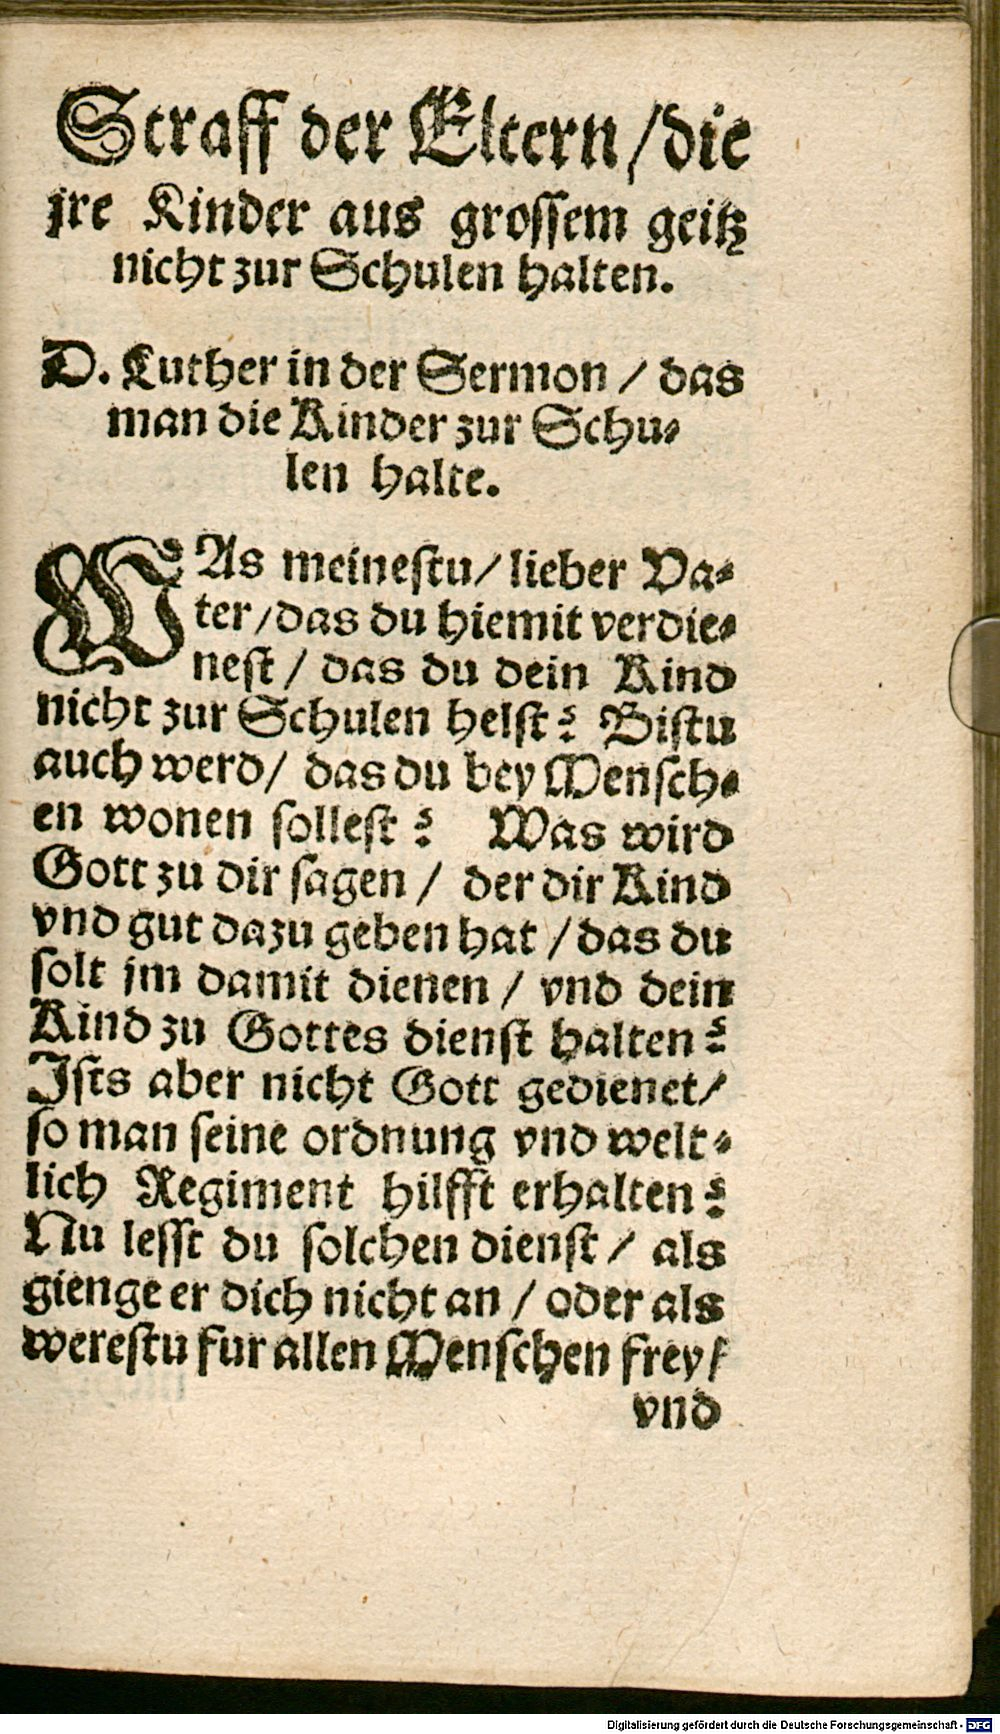 Straff der Eltern / die
jre Kinder aus grossem geitz
nicht zur Schulen halten.
D. Luther in der Sermon / das
man die Kinder zur Schu⸗
len halte.
WAs meinestu / lieber Va⸗
ter / das du hiemit verdie⸗
nest / das du dein Kind
nicht zur Schulen helst? Bistu
auch werd / das du bey Mensch⸗
en wonen sollest? Was wird
Gott zu dir sagen / der dir Kind
vnd gut dazu geben hat / das du
solt jm damit dienen / vnd dein
Kind zu Gottes dienst halten?
Ists aber nicht Gott gedienet /
so man seine ordnung vnd welt⸗
lich Regiment hilfft erhalten?
Nu lesst du solchen dienst / als
gienge er dich nicht an / oder als
werestu fur allen Menschen frey /
vnd
Digitalisierung gefördert durch die Deutsche Forschungsgemeinschaft - DFG